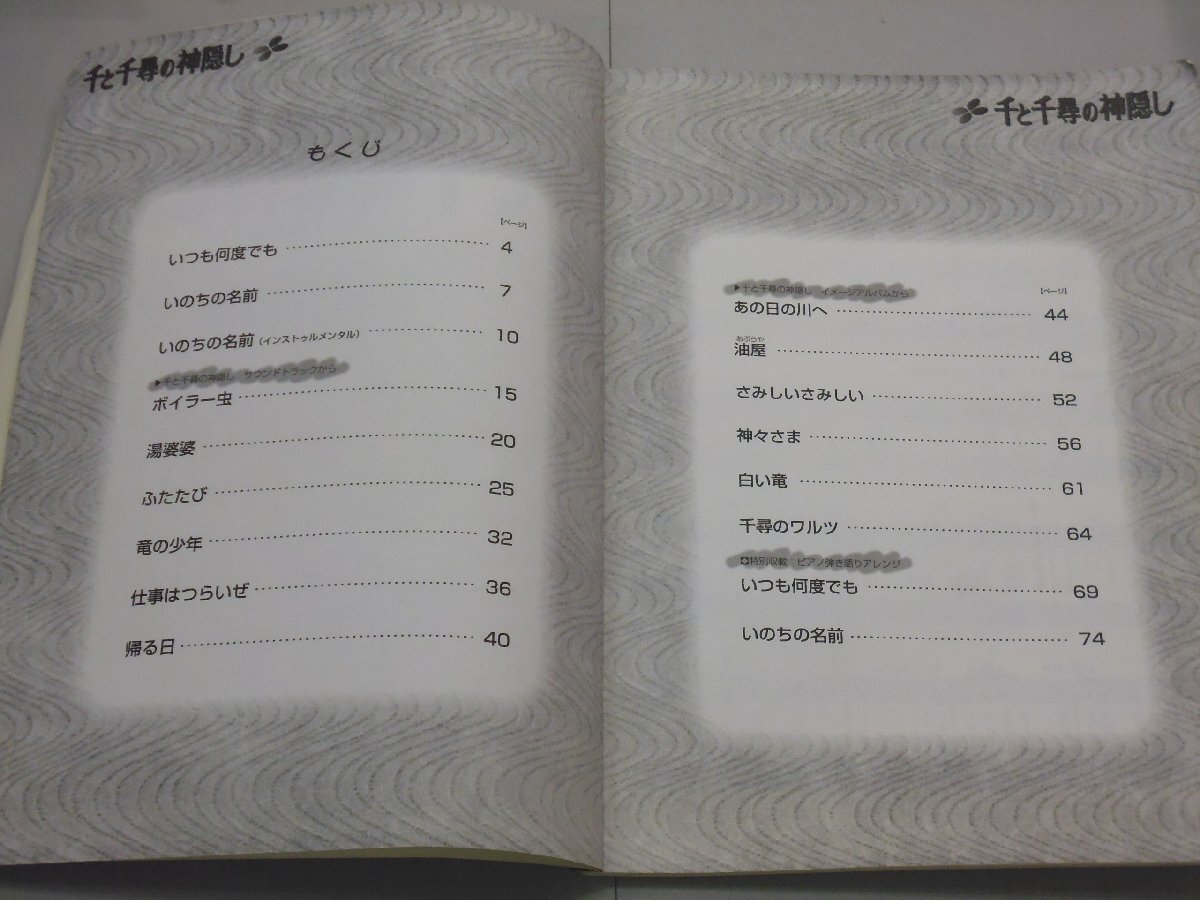 千と千尋の神隠し
もくじ
【ページ】
いつも何度でも 4
いのちの名前 7
いのちの名前(インストゥルメンタル) 10
▶千と千尋の神隠し サウンドトラックから
ボイラー虫 15
湯婆婆 20
ふたたび 25
竜の少年 32
仕事はつらいぜ 36
帰る日 40
千と千尋の神隠し
▶千と千尋の神隠し イメージアルバムから
【ページ】
あの日の川へ 44
あぶらや
油屋 48
さみしいさみしい 52
神々さま 56
白い竜 61
千尋のワルツ 64
特別収載:ピアノ弾き語りアレンジ
いつも何度でも 69
いのちの名前 74